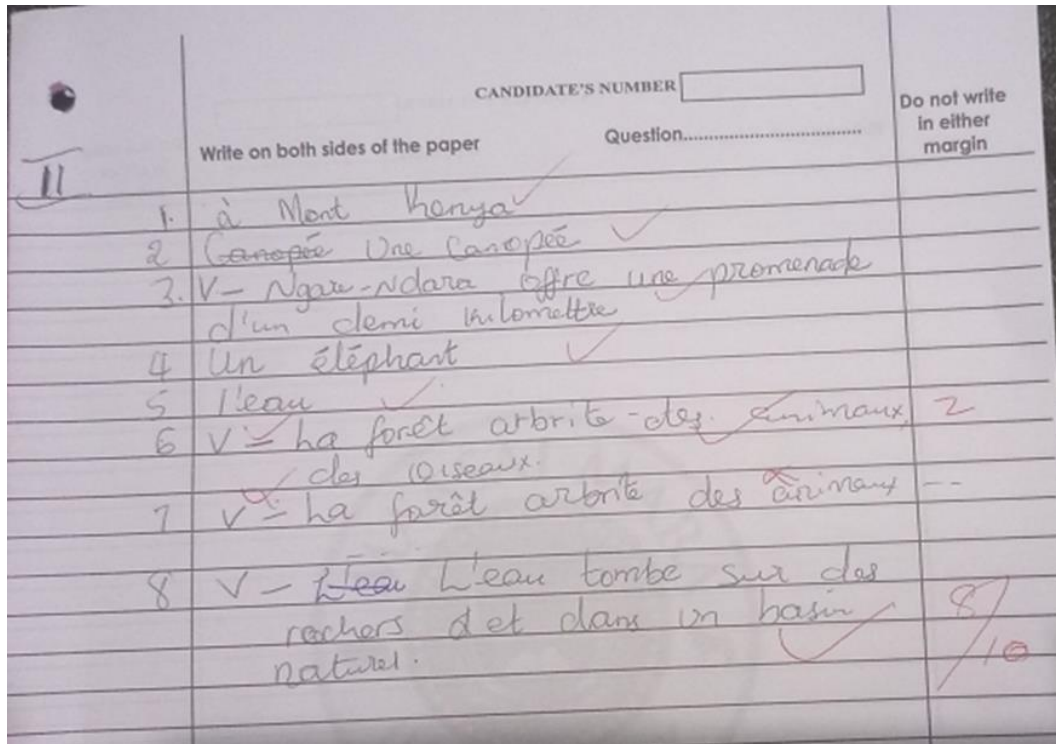 CANDIDATE'S NUMBER
Do not write
in either
margin
Write on both sides of the paper Question
11
1. à Mont Kenya
2 Canopée Une Canopée
3. V- Ngare-Ndara offre une promenade
d'un demi kilomettre
4 Un éléphant
5 l'eau
6 V- La forêt arbrite des animaux, 2
des oiseaux.
7 V- La forêt arbrite des animaux --
8 V- L'eau L'eau tombe sur des
rochers d et dans un basin 8/10
naturel.